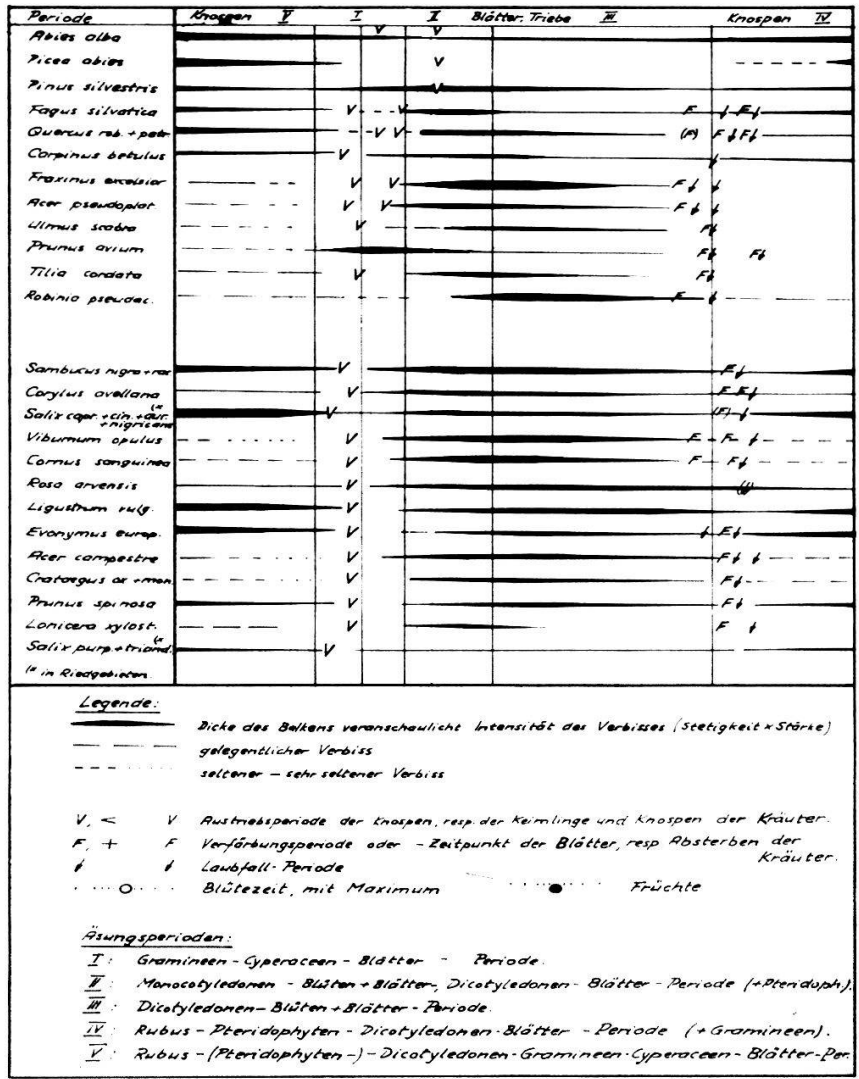 Periode Knospen V I II Blätter, Triebe III Knospen IV
Abies alba V V
Picea abies V
Pinus silvestris V
Fagus silvatica V V F F
Quercus rob. + petr. V V (F) F F
Carpinus betulus V
Fraxinus excelsior V V F
Acer pseudoplat. V V F
Ulmus scabra V F
Prunus avium F F
Tilia cordata V F
Robinia pseudac. F
Sambucus nigra + rac. V F
Corylus avellana V F F
Salix capr. + cin. + aur. (x V (F)
+ nigricans
Viburnum opulus V F F
Cornus sanguinea V F F
Rosa arvensis V
Ligustrum vulg. V
Evonymus europ. V F
Acer campestre V F
Crataegus ox + mon. V F
Prunus spinosa V F
Lonicera xylost. V F
Salix purp. + triand. (x V
(x in Riedgebieten.
Legende:
Dicke des Balkens veranschaulicht Intensität des Verbisses (Stetigkeit x Stärke)
gelegentlicher Verbiss
seltener – sehr seltener Verbiss
V, < V Austriebsperiode der Knospen, resp. der Keimlinge und Knospen der Kräuter.
F, + F Verfärbungsperiode oder -Zeitpunkt der Blätter, resp Absterben der
Kräuter.
Laubfall-Periode
Blütezeit, mit Maximum Früchte
Äsungsperioden:
I : Gramineen-Cyperaceen-Blätter - Periode.
II : Monocotyledonen - Blüten + Blätter-, Dicotyledonen-Blätter-Periode (+Pteridoph.).
III : Dicotyledonen-Blüten+Blätter-Periode.
IV : Rubus-Pteridophyten-Dicotyledonen-Blätter - Periode (+ Gramineen).
V : Rubus-(Pteridophyten-)-Dicotyledonen-Gramineen-Cyperaceen-Blätter-Per.